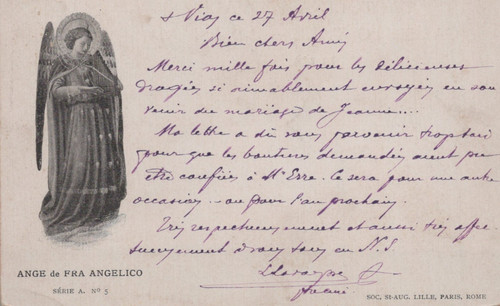 Vias ce 27 Avril
Bien chers Amis
Merci mille fois pour les délicieuses
dragées si aimablement envoyées en sou
venir du mariage de Jeanne....
Ma lettre a dû vous parvenir trop tard
pour que les boutures demandées aient pu
être confiées à Mr Erre. Ce sera pour une autre
occasion... ou pour l'an prochain.
Très respectueusement et aussi très affec
tueusement à vous tous en N. S.
ANGE de FRA ANGELICO
SÉRIE A. Nº 5
SOC. St-AUG. LILLE, PARIS, ROME